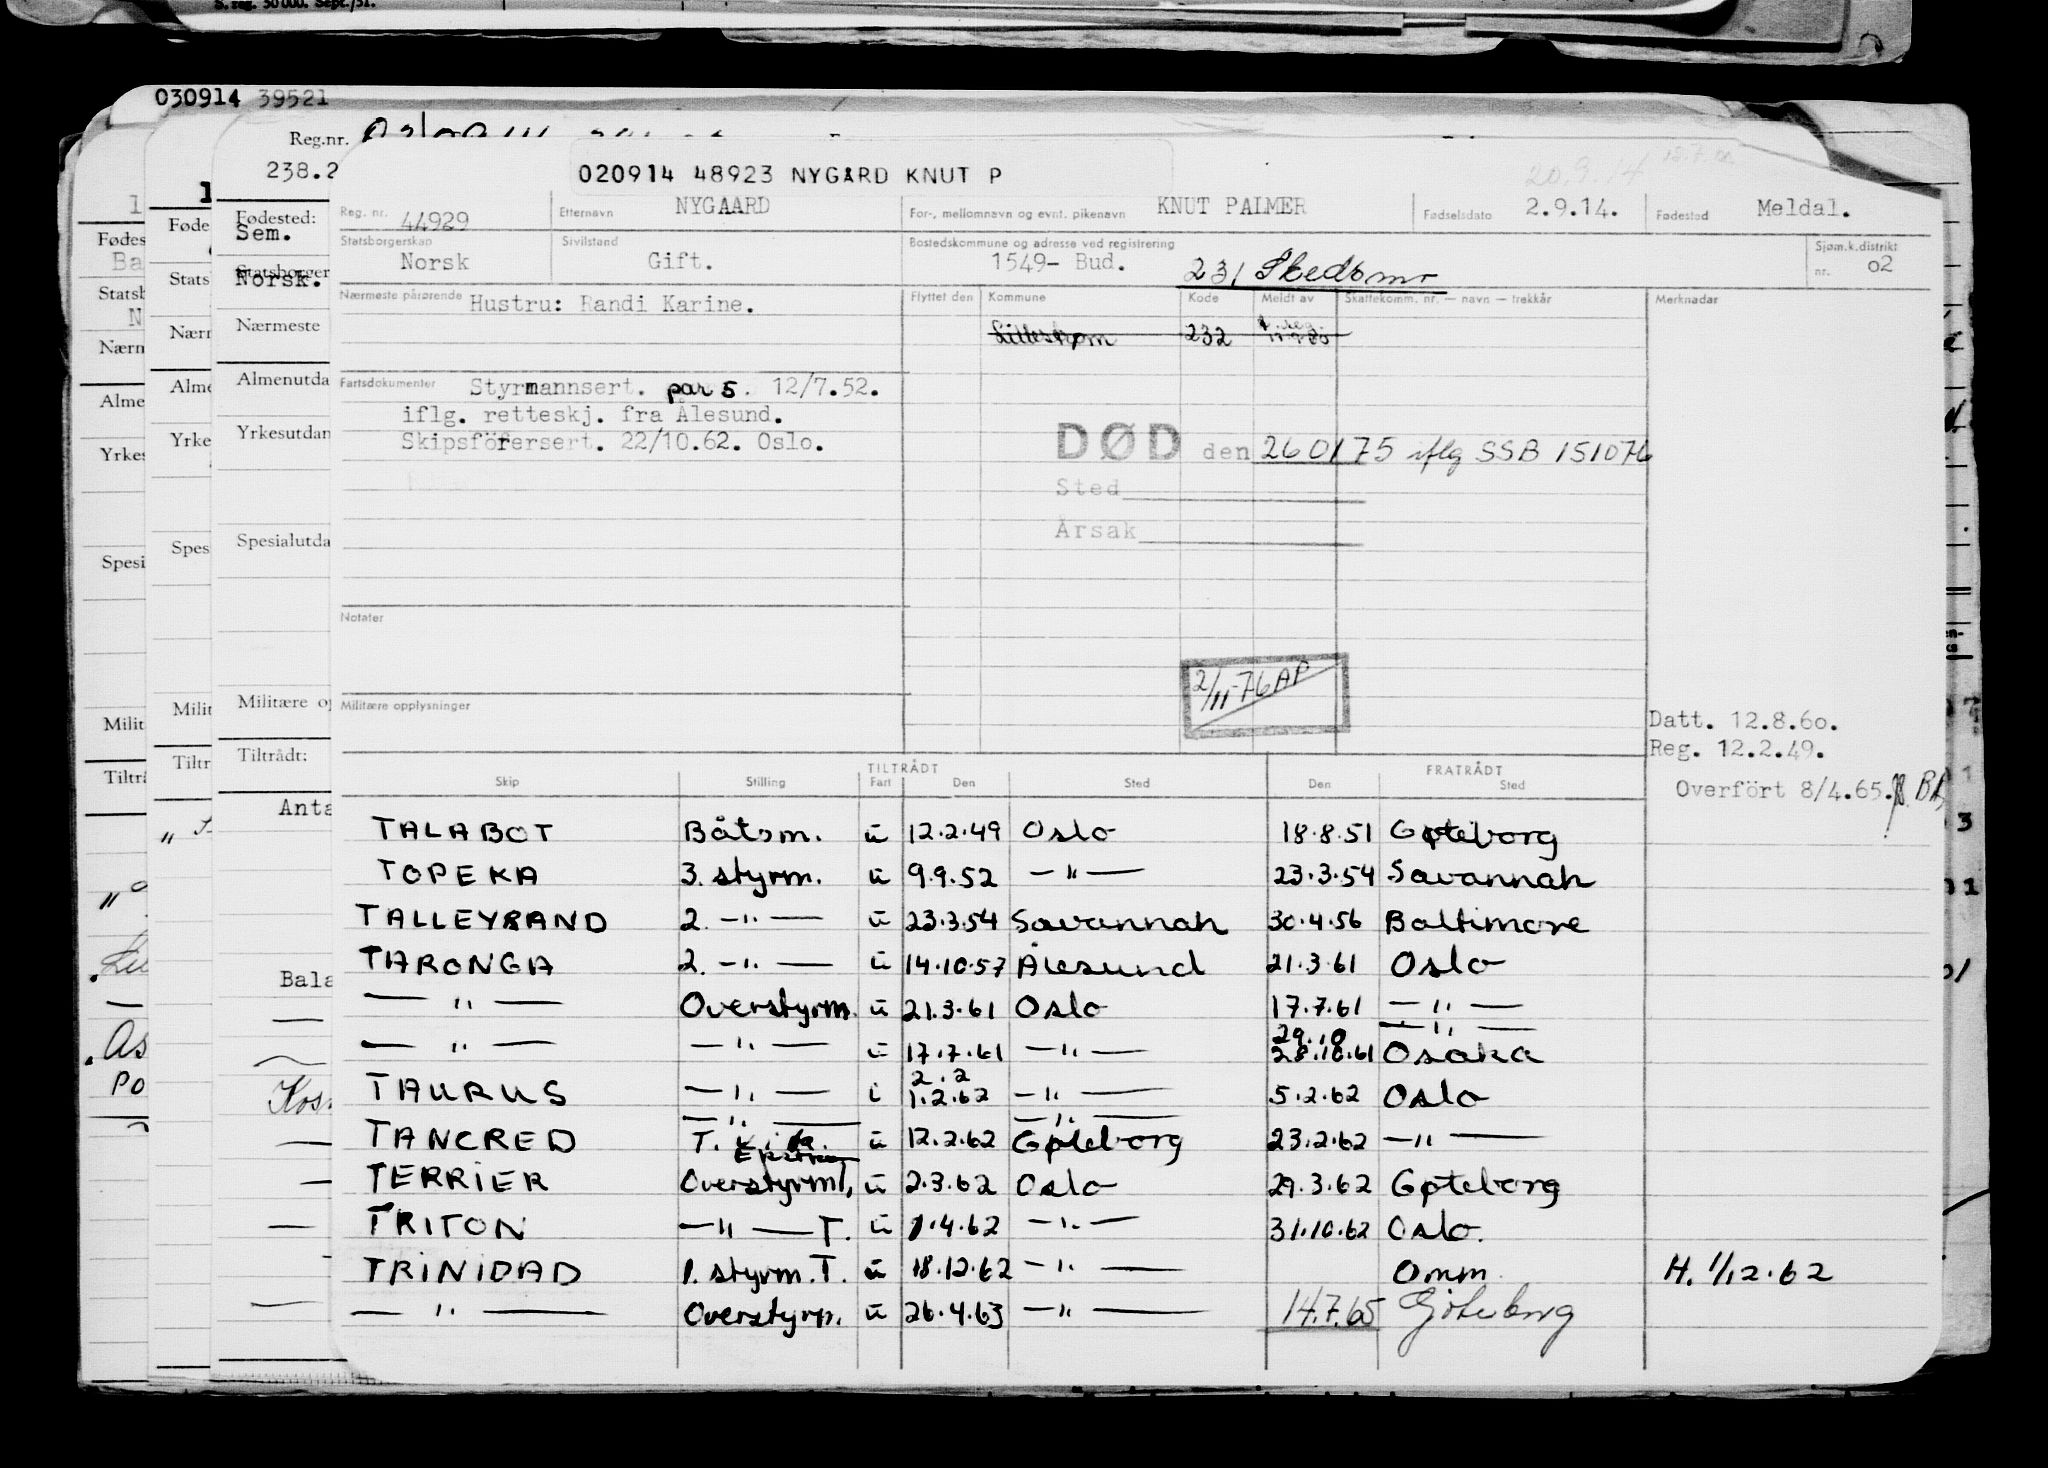 S. reg. 50000. Sept./51.
030914 39521
Reg.nr.
238.2
020914 48923 NYGÅRD KNUT P
20.9.14
Reg. nr. 44929 Etternavn NYGAARD For-, mellomnavn og evnt. pikenavn KNUT PALMER Fødselsdato 2.9.14. Fødested Meldal.
Statsborgerskap Norsk Sivilstand Gift. Bostedskommune og adresse ved registrering 1549- Bud. 231 Skedsmo Sjøm.k.distrikt nr. 02
Nærmeste pårørende Hustru: Randi Karine. Flyttet den Kommune Kode Meldt av Skattekomm. nr. — navn — trekkår Merknader
Lillestrøm 232
Fartsdokumenter Styrmannsert. par 5. 12/7.52.
iflg. retteskj. fra Ålesund.
Skipsförersert. 22/10.62. Oslo.
DØD den 260175 iflg SSB 151076
Sted
Årsak
Notater
2/11-76 AP
Militære opplysninger
Datt. 12.8.60.
Reg. 12.2.49.
Overfört 8/4.65.
TILTRÅDT FRATRÅDT
Skip Stilling Fart Den Sted Den Sted
TALABOT Båtsm. u 12.2.49 Oslo 18.8.51 Gøteborg
TOPEKA 3. styrm. u 9.9.52 —"— 23.3.54 Savannah
TALLEYRAND 2. —"— u 23.3.54 Savannah 30.4.56 Baltimore
TARONGA 2. —"— u 14.10.57 Ålesund 21.3.61 Oslo
—"— Overstyrm. u 21.3.61 Oslo 17.7.61 —"—
29.10 —"—
—"— —"— u 17.7.61 —"— 28.10.61 Osaka
2.2
TAURUS —"— i 1.2.62 —"— 5.2.62 Oslo
—"— —"—
TANCRED T. u 12.2.62 Gøteborg 23.2.62 —"—
Ekstra
TERRIER Overstyrm T, u 2.3.62 Oslo 29.3.62 Gøteborg
TRITON —"— T. u 1.4.62 —"— 31.10.62 Oslo.
TRINIDAD 1. styrm. T. u 18.12.62 —"— Omm H. 1/12.62
—"— Overstyrm. u 26.4.63 —"— 14.7.65 Göteborg
Fødested:
Sem.
Statsborger
Norsk.
Nærmeste
Almenutda
Yrkesutdan
Spesialutda
Militære op
Tiltrådt:
Anta
Bala
Kos
Føde
Stats
Nærr
Alme
Yrke
Spes
Milit
Tiltr
Fødes
Ba
Statsb
N
Nærn
Alme
Yrkes
Spesi
Milit
Tiltrå
As
PO